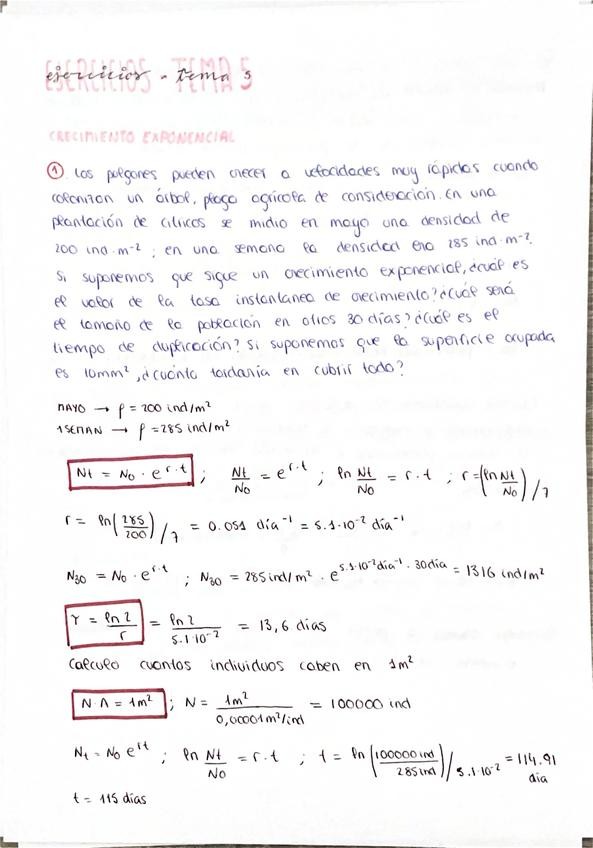 EJERCICIOS - TEMA 5
ejercicios - tema 5
CRECIMIENTO EXPONENCIAL
① Los pulgones pueden crecer a velocidades muy rápidas cuando
colonizan un árbol, plaga agrícola de consideración. En una
plantación de cítricos se midio en mayo una densidad de
200 ind·m⁻² ; en una semana la densidad era 285 ind·m⁻².
Si suponemos que sigue un crecimiento exponencial, ¿cuál es
el valor de la tasa instantanea de crecimiento? ¿Cuál será
el tamaño de la población en otros 30 días? ¿Cuál es el
tiempo de duplicación? Si suponemos que la superficie ocupada
es 10mm², ¿cuánto tardaría en cubrir todo?
MAYO → ρ = 200 ind/m²
1 SEMAN → ρ = 285 ind/m²
Nt = N₀ · e^r·t ; Nt/N₀ = e^r·t ; ln Nt/N₀ = r·t ; r = (ln Nt/N₀)/7
r = ln(285/200)/7 = 0.051 día⁻¹ = 5.1·10⁻² día⁻¹
N₃₀ = N₀ · e^r·t ; N₃₀ = 285 ind/m² · e^5.1·10⁻² día⁻¹ · 30 día = 1316 ind/m²
Υ = ln 2/r = ln 2/5.1·10⁻² = 13,6 días
Calculo cuantos individuos caben en 1m²
N·A = 1m² ; N = 1m²/0,00001 m²/ind = 100000 ind
Nt = N₀ e^rt ; ln Nt/N₀ = r·t ; t = ln(100000 ind/285 ind)/5.1·10⁻² = 114.91
día
t = 115 días